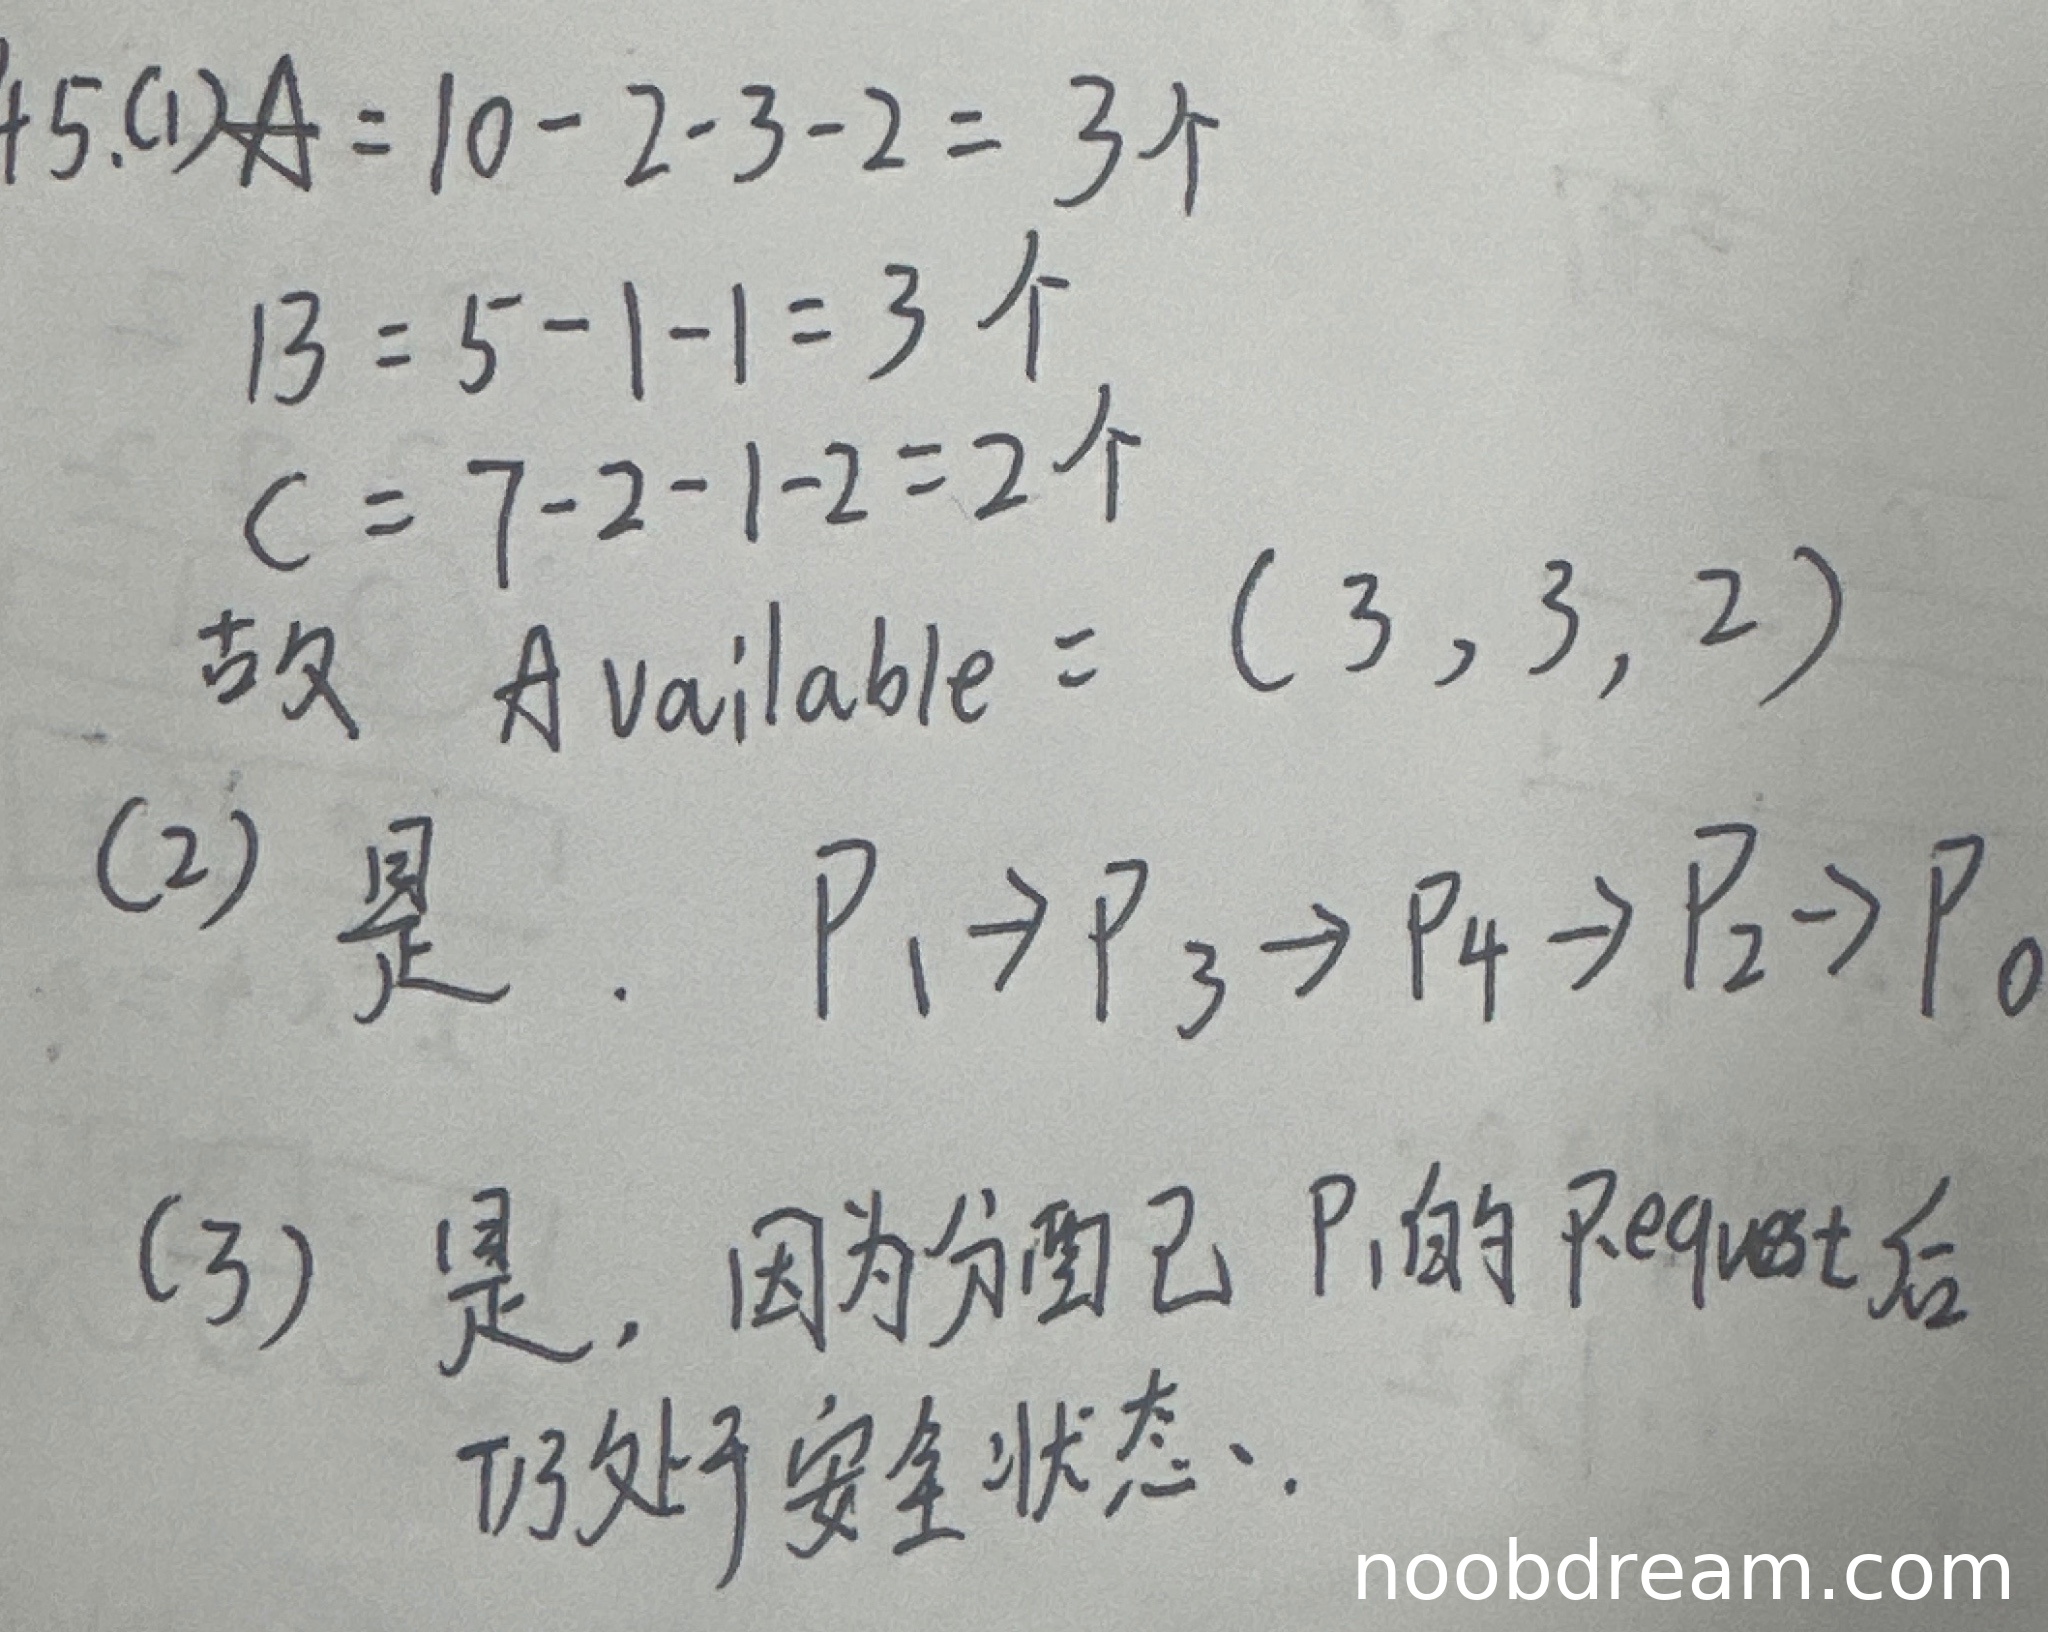 45.(1)A = 10 - 2 - 3 - 2 = 3个
B = 5 - 1 - 1 = 3个
C = 7 - 2 - 1 - 2 = 2个
故 Available = (3, 3, 2)
(2) 是. P1→P3→P4→P2→P0
(3) 是. 因为分配已 P1的Request后
仍处于安全状态.
noobdream.com